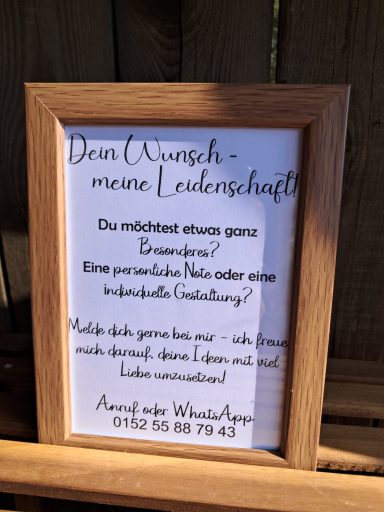 Dein Wunsch -
meine Leidenschaft!
Du möchtest etwas ganz
Besonderes?
Eine persönliche Note oder eine
individuelle Gestaltung?
Melde dich gerne bei mir - ich freue
mich darauf, deine Ideen mit viel
Liebe umzusetzen!
Anruf oder WhatsApp
0152 55 88 79 43